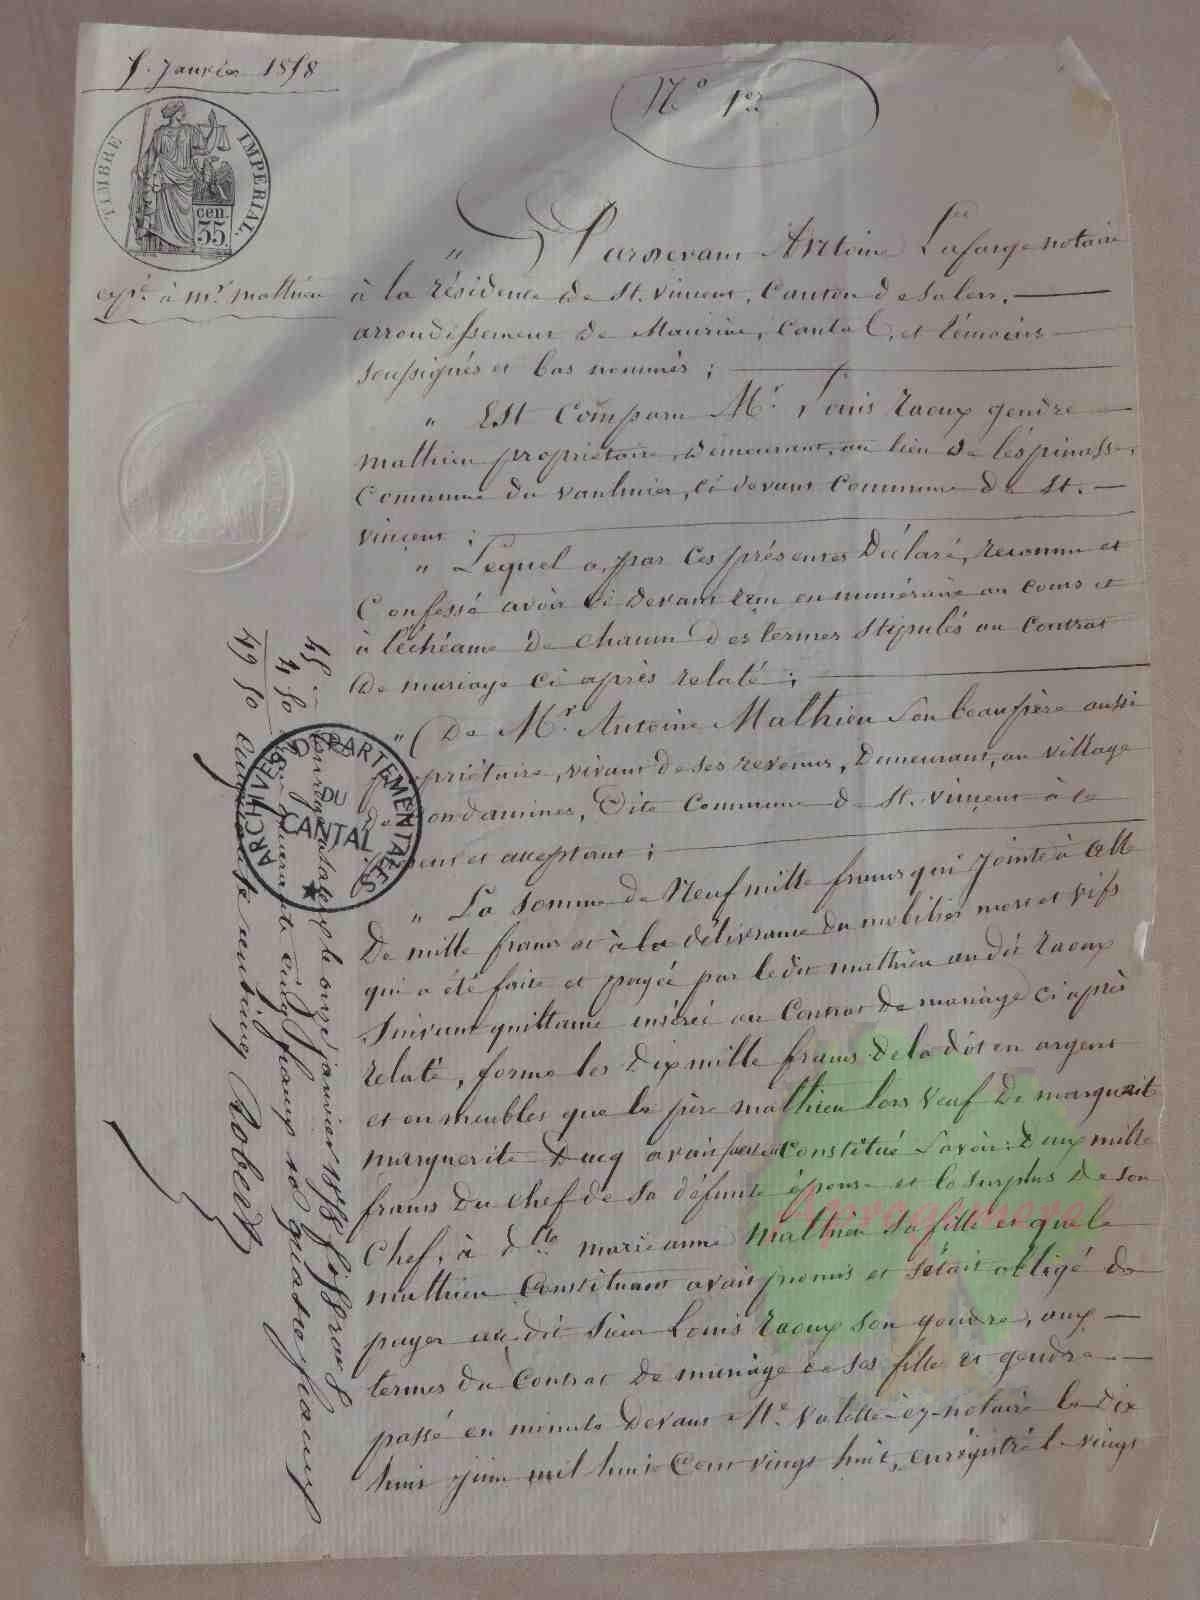 5. Janvier 1858
N.o 1er
TIMBRE IMPERIAL.
cen. 35
expé. à mr. mathieu
" Pardevant Antoine Lafarge notaire
à la résidence de St. vincent, Canton de Salers,
arrondissement de Mauriac, Cantal, et témoins
soussignés et bas nommés ;
" Est Comparu Mr. Louis Raoux gendre
mathieu propriétaire, demeurant, au lieu de lespinasse,
Commune du vaulmier, ci devant Commune de St.
vincent ;
" Lequel a, par ces présentes déclaré, reconnu et
Confessé avoir ci devant reçu en numéraire au cours et
à l'échéance de chacun des termes stipulés au contrat
de mariage ci après relaté ;
" De Mr. Antoine Mathieu son beaupère aussi
propriétaire, vivant de ses revenus, demeurant, au village
dite Commune de St. vincent à ce
et acceptant ;
" La somme de Neuf mille francs qui jointe à celle
De mille francs et à la délivrance du mobilier mort et vifs
qui a été faite et payée par ledit mathieu au dit Raoux
suivant quittance insérée au Contrat de mariage ci après
relaté, forme les dix mille francs de la dot en argent
et en meubles que le père mathieu lors veuf de marguerit
marguerite Ducq avait constitué savoir : deux mille
francs du chef de sa défunte épouse et le surplus de son
Chef, à dlle marianne mathieu sa fille et que le
mathieu Constituant avait promis et s'était obligé de
payer au dit sieur Louis Raoux son gendre, aux
termes du Contrat de mariage de ses fille et gendre
passé en minute devant Me. valette ex-notaire le dix
huit juin mil huit Cent vingt huit, enrégistré le vingt
ARCHIVES DEPARTEMENTALES
DU
CANTAL
45 "
4 50
49 50
le onze janvier 1858
quarante cinq francs quatre francs
cinquante centimes Robert